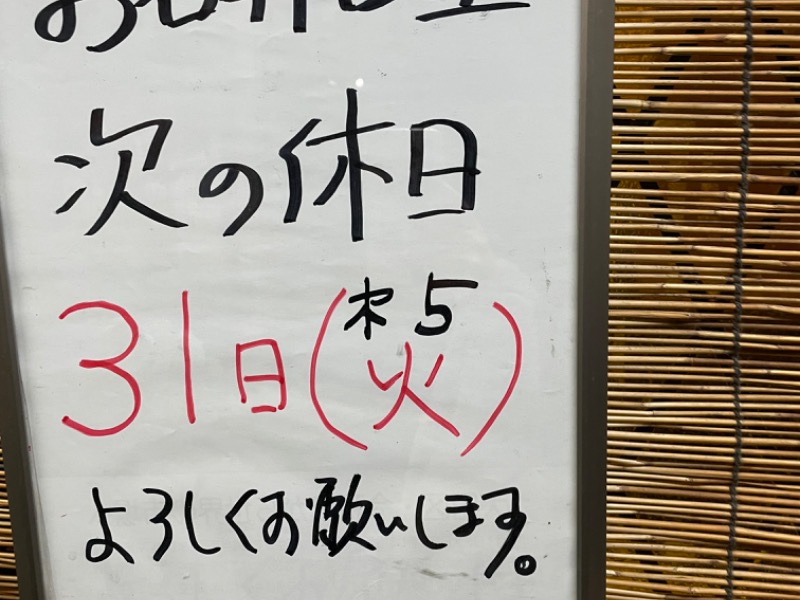 次の休日
31日(火)
よろしくお願いします。